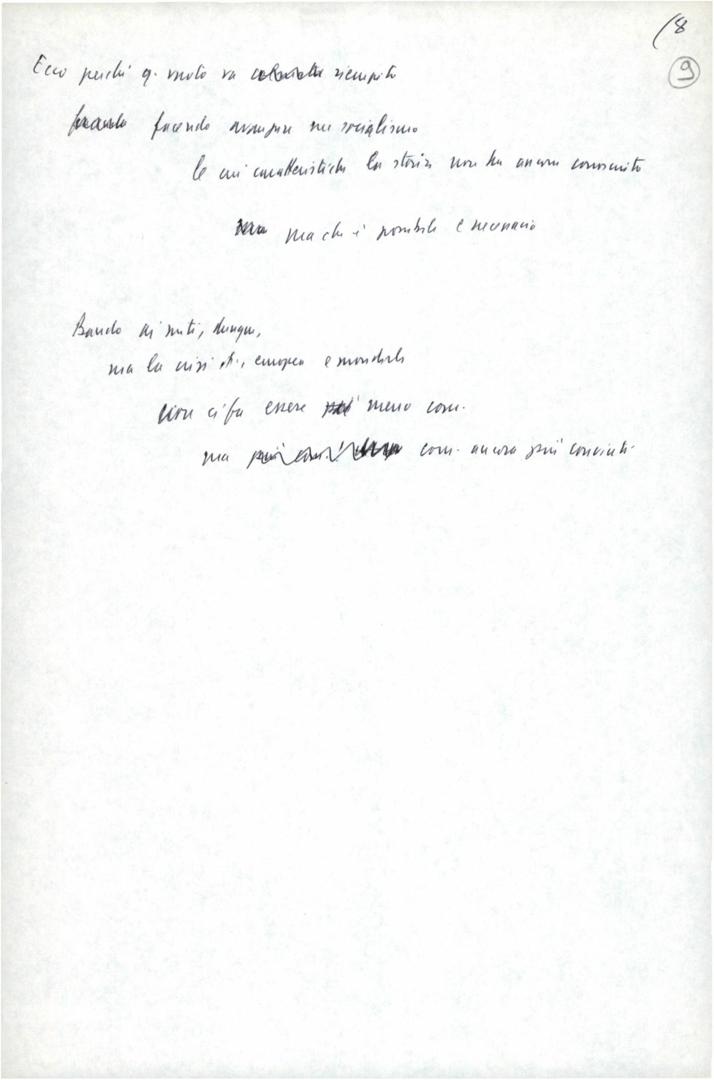 (8
9
Ecco perché q. vuoto va riempito
facendo avanzare un socialismo
le cui caratteristiche la storia non ha ancora conosciuto
ma che è possibile e necessario
Bando ai miti, dunque,
ma la crisi it., europea e mondiale
non ci fa essere meno com.
ma com. ancora più convinti.